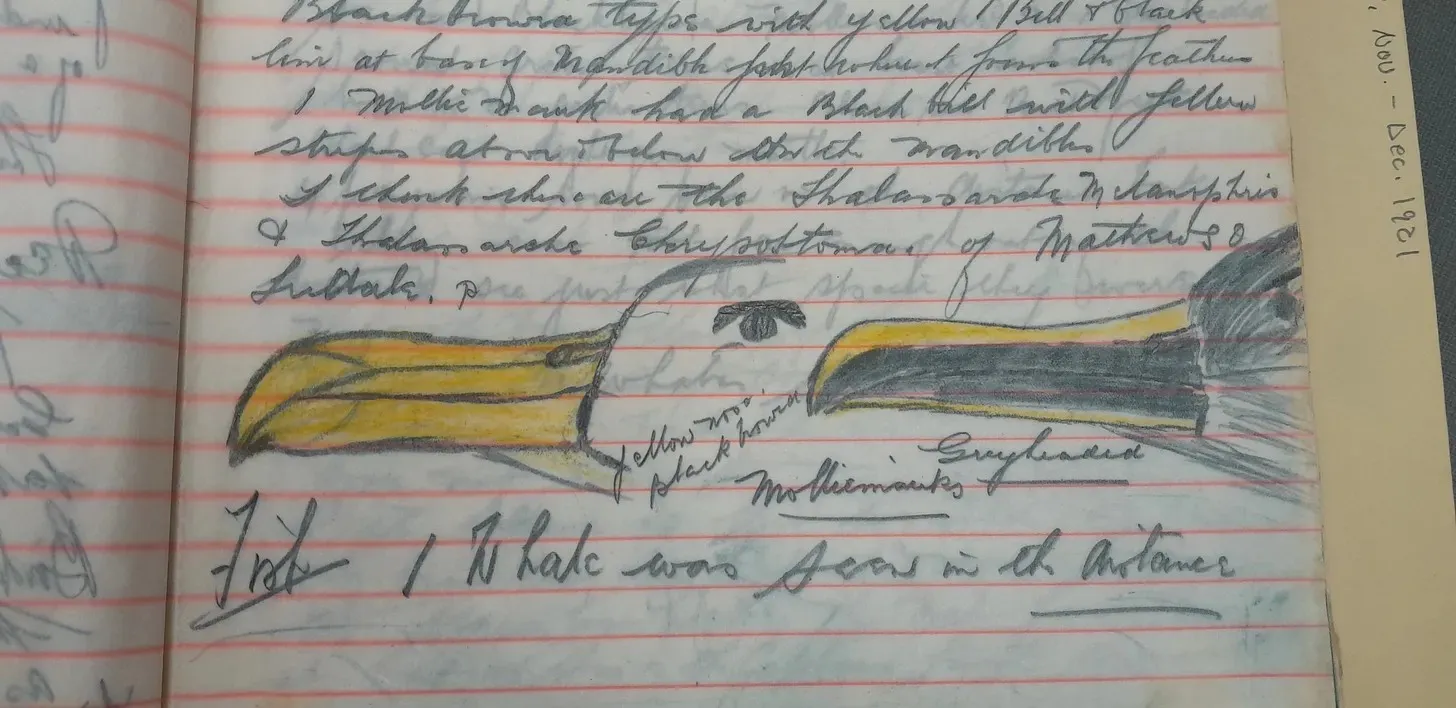 Black browed type with yellow Bill & black
line at base of Mandible just where it joins the feathers
1 Mollie mauk had a Black bill with yellow
stripes above & below on the mandibles
I think these are the Thalassarche Melanophris
& Thalassarche Chrysostoma. of Mathews &
Iredale.
yellow nose.
black browed
Greyheaded
Molliemauks
Fish 1 Whale was seen in the distance
Nov. - Dec. 1921